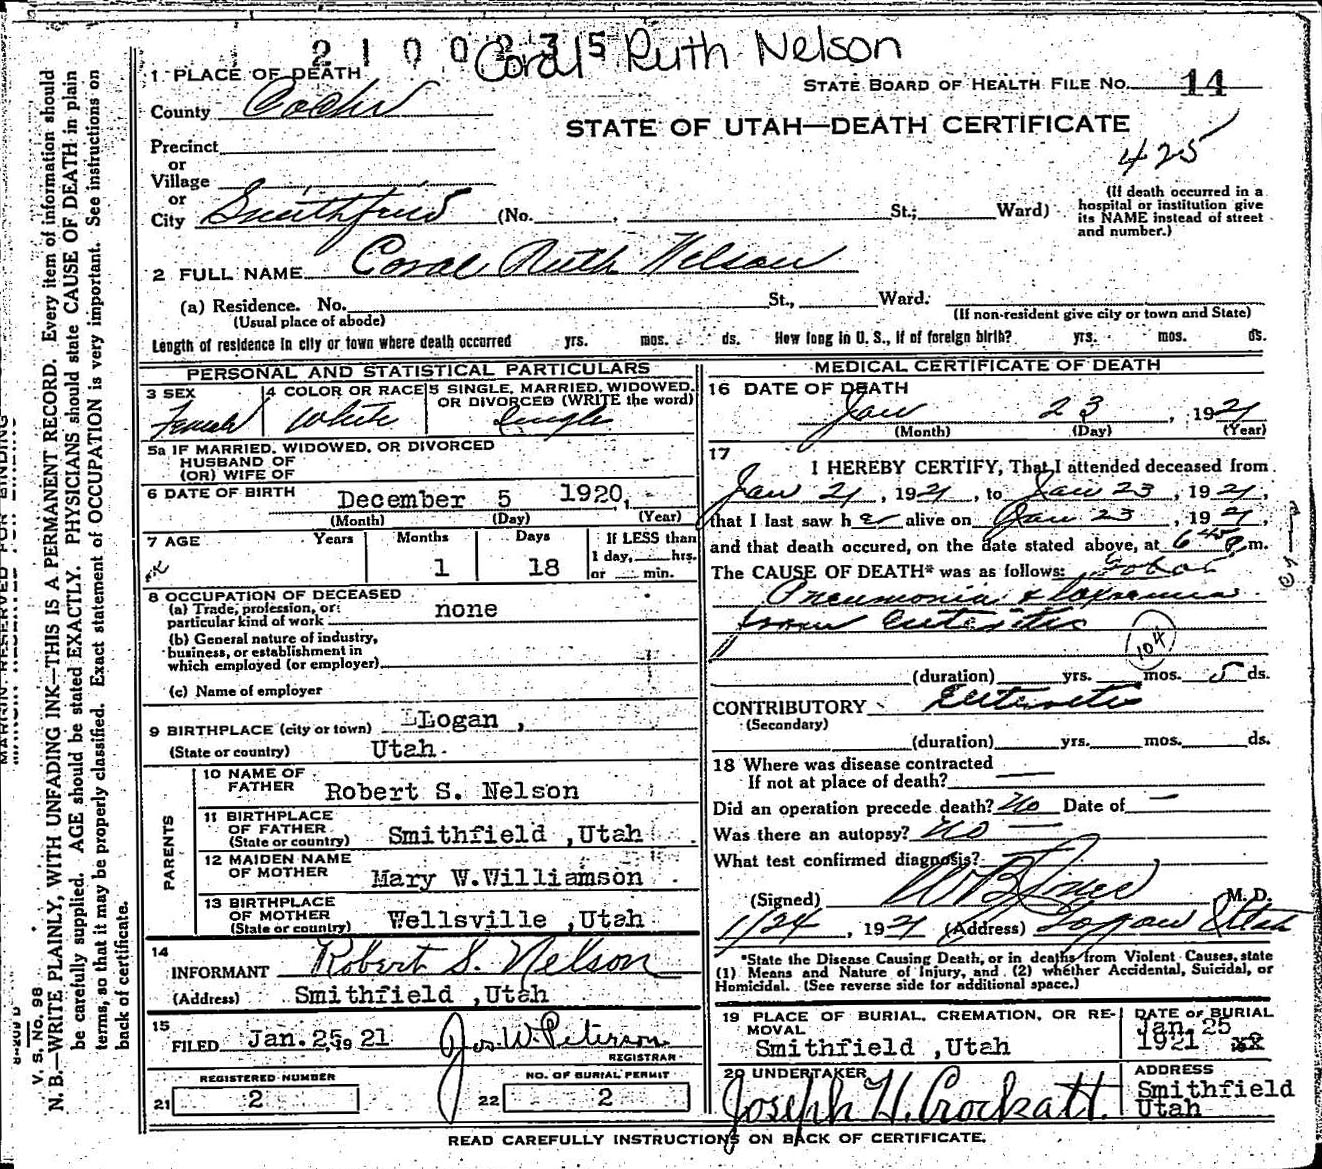 2 1 0 0 2 3 5
Coral Ruth Nelson
1 PLACE OF DEATH
STATE BOARD OF HEALTH FILE No. 14
County Cache
STATE OF UTAH—DEATH CERTIFICATE
425
Precinct
or
Village
or
City Smithfield (No. , St.; Ward)
(If death occurred in a
hospital or institution give
its NAME instead of street
and number.)
2 FULL NAME Coral Ruth Nelson
(a) Residence. No. St., Ward.
(Usual place of abode)
(If non-resident give city or town and State)
Length of residence in city or town where death occurred yrs. mos. ds. How long in U. S., if of foreign birth? yrs. mos. ds.
PERSONAL AND STATISTICAL PARTICULARS
3 SEX
Female
4 COLOR OR RACE
White
5 SINGLE, MARRIED, WIDOWED,
OR DIVORCED (WRITE the word)
Single
5a IF MARRIED, WIDOWED, OR DIVORCED
HUSBAND OF
(OR) WIFE OF
6 DATE OF BIRTH December 5 1920,
(Month) (Day) (Year)
7 AGE Years Months Days
1 18
If LESS than
1 day, hrs.
or min.
8 OCCUPATION OF DECEASED
(a) Trade, profession, or
particular kind of work none
(b) General nature of industry,
business, or establishment in
which employed (or employer)
(c) Name of employer
9 BIRTHPLACE (city or town) Logan ,
(State or country) Utah.
PARENTS
10 NAME OF
FATHER Robert S. Nelson
11 BIRTHPLACE
OF FATHER
(State or country) Smithfield ,Utah
12 MAIDEN NAME
OF MOTHER Mary W.Williamson
13 BIRTHPLACE
OF MOTHER
(State or country) Wellsville ,Utah
14
INFORMANT Robert S. Nelson
(Address) Smithfield ,Utah
15
FILED Jan.25, 19 21 Jos W. Peterson
REGISTRAR
REGISTERED NUMBER
21 2
NO. OF BURIAL PERMIT
22 2
MEDICAL CERTIFICATE OF DEATH
16 DATE OF DEATH
Jan 23, 1921
(Month) (Day) (Year)
17
I HEREBY CERTIFY, That I attended deceased from
Jan 21, 1921, to Jan 23, 1921,
that I last saw her alive on Jan 23, 1921,
and that death occured, on the date stated above, at 645 P m.
The CAUSE OF DEATH* was as follows: Lobar
Pneumonia & Toxaemia
from Enteritis
104
(duration) yrs. mos. 5 ds.
CONTRIBUTORY Enteritis
(Secondary)
(duration) yrs. mos. ds.
18 Where was disease contracted
If not at place of death?
Did an operation precede death? No Date of —
Was there an autopsy? No —
What test confirmed diagnosis?
(Signed) M.D.
1/24, 1921 (Address) Logan Utah
*State the Disease Causing Death, or in deaths from Violent Causes, state
(1) Means and Nature of Injury, and (2) whether Accidental, Suicidal, or
Homicidal. (See reverse side for additional space.)
19 PLACE OF BURIAL, CREMATION, OR RE-
MOVAL
Smithfield ,Utah
DATE OF BURIAL
Jan. 25
1921
20 UNDERTAKER
Joseph H. Crockatt.
ADDRESS
Smithfield
Utah
READ CAREFULLY INSTRUCTIONS ON BACK OF CERTIFICATE.
MARGIN RESERVED FOR BINDING
V. S. No. 98
N. B.—WRITE PLAINLY, WITH UNFADING INK—THIS IS A PERMANENT RECORD. Every item of information should
be carefully supplied. AGE should be stated EXACTLY. PHYSICIANS should state CAUSE OF DEATH in plain
terms, so that it may be properly classified. Exact statement of OCCUPATION is very important. See instructions on
back of certificate.